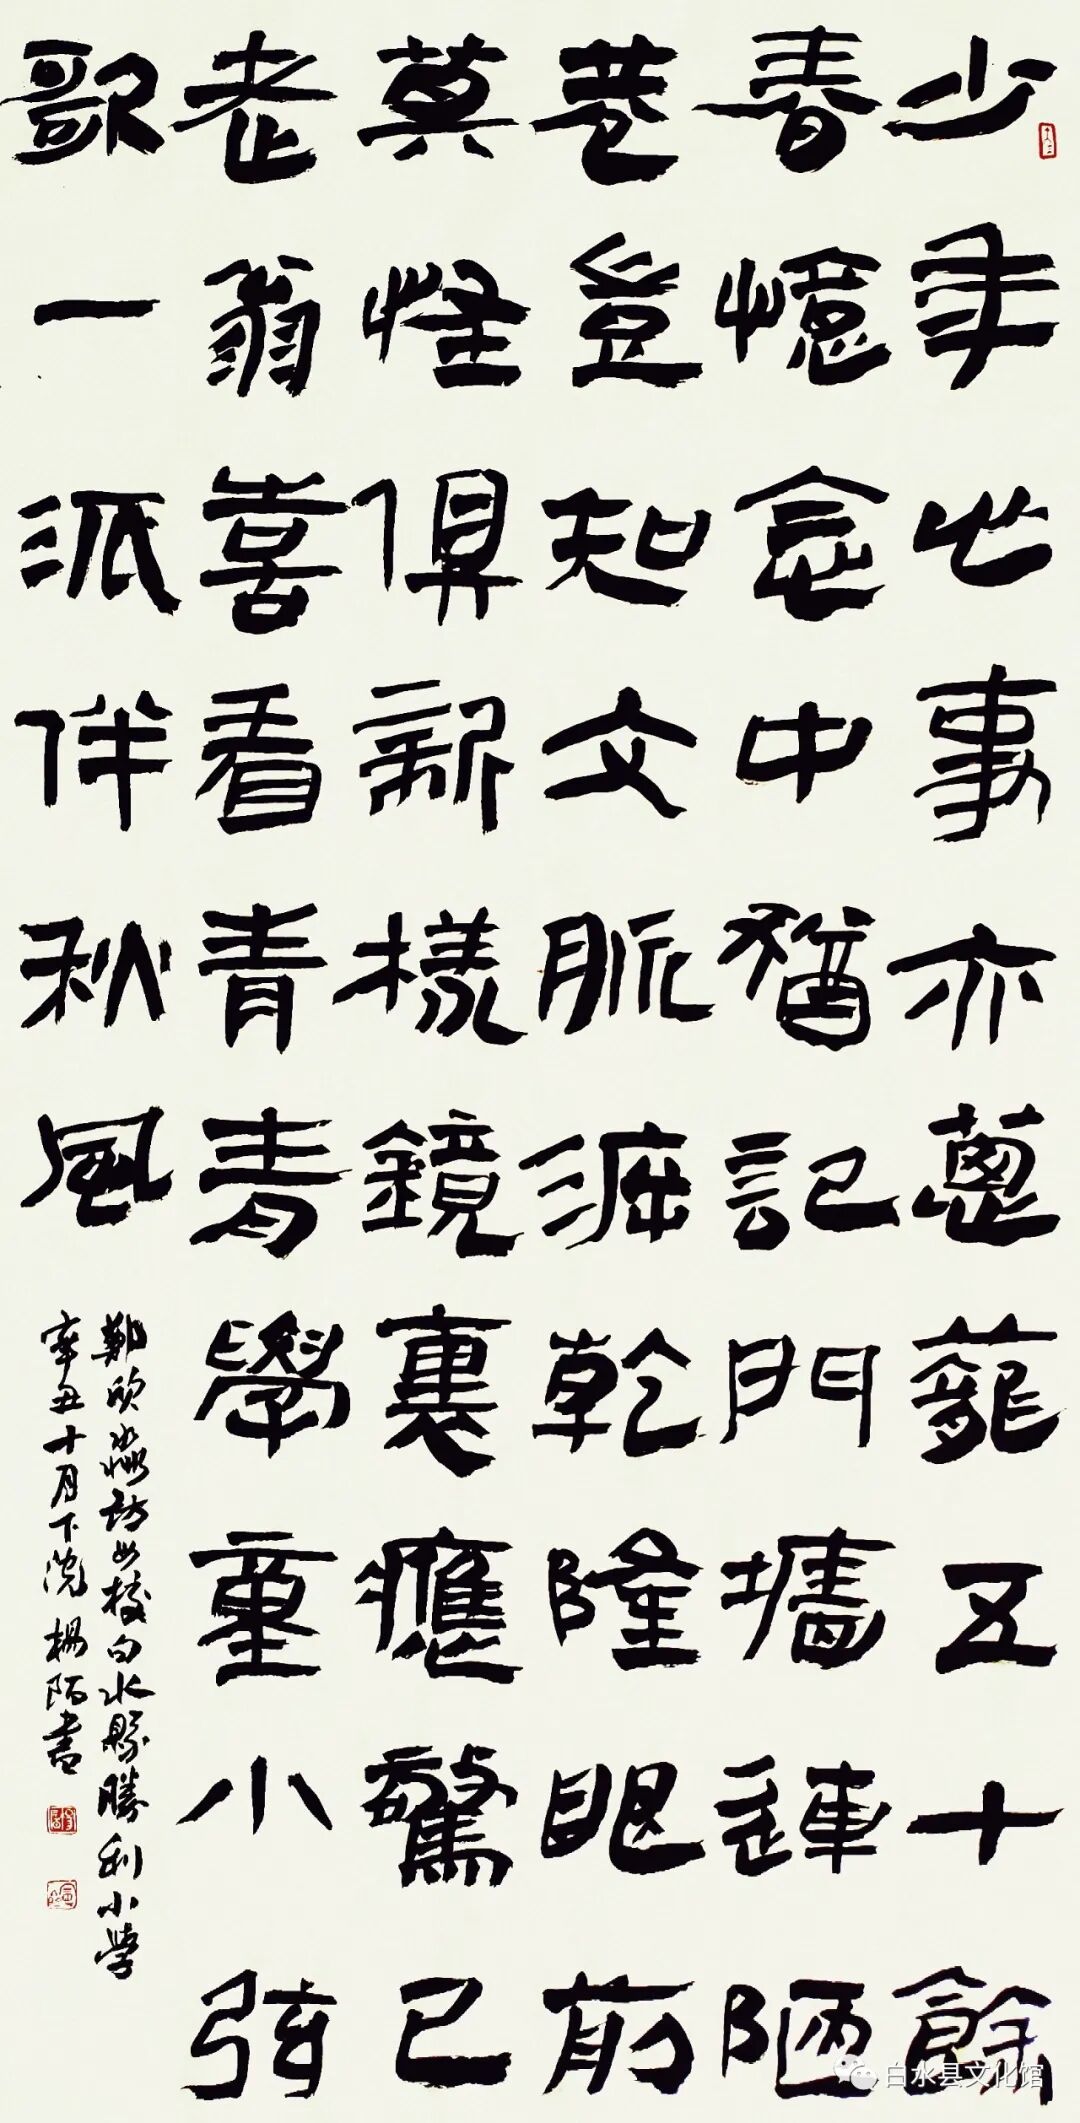 少年心事亦蔥蘢五十餘
春憶念中猶記門墻連陋
巷豈知文脈泝乾隆眼前
莫怪俱新樣鏡裏應驚已
老翁喜看青青學童小弦
歌一派伴秋風
鄭欣淼訪母校白水縣勝利小學
辛丑十月下浣楊陌書
白水县文化馆